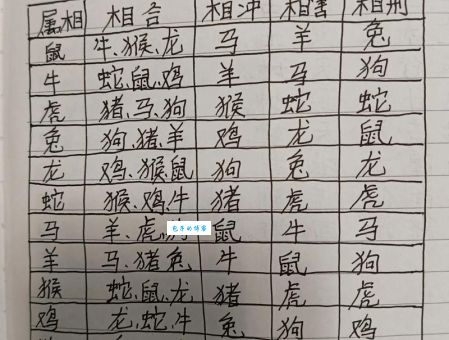 属相 相合 相冲 相害 相刑
鼠 牛、猴、龙 马 羊 兔
牛 蛇、鼠、鸡 羊 马 狗
虎 猪、马、狗 猴 蛇 蛇
兔 狗、猪、羊 鸡 龙 鼠
龙 鸡、猴鼠 狗 兔 龙
蛇 猴、鸡、牛 猪 虎 虎
马 羊、虎 鼠 牛 马
羊 马、猪兔 牛 鼠 狗
猴 蛇、鼠、龙 猪 虎 虎
鸡 龙、蛇、牛 兔 狗 鸡